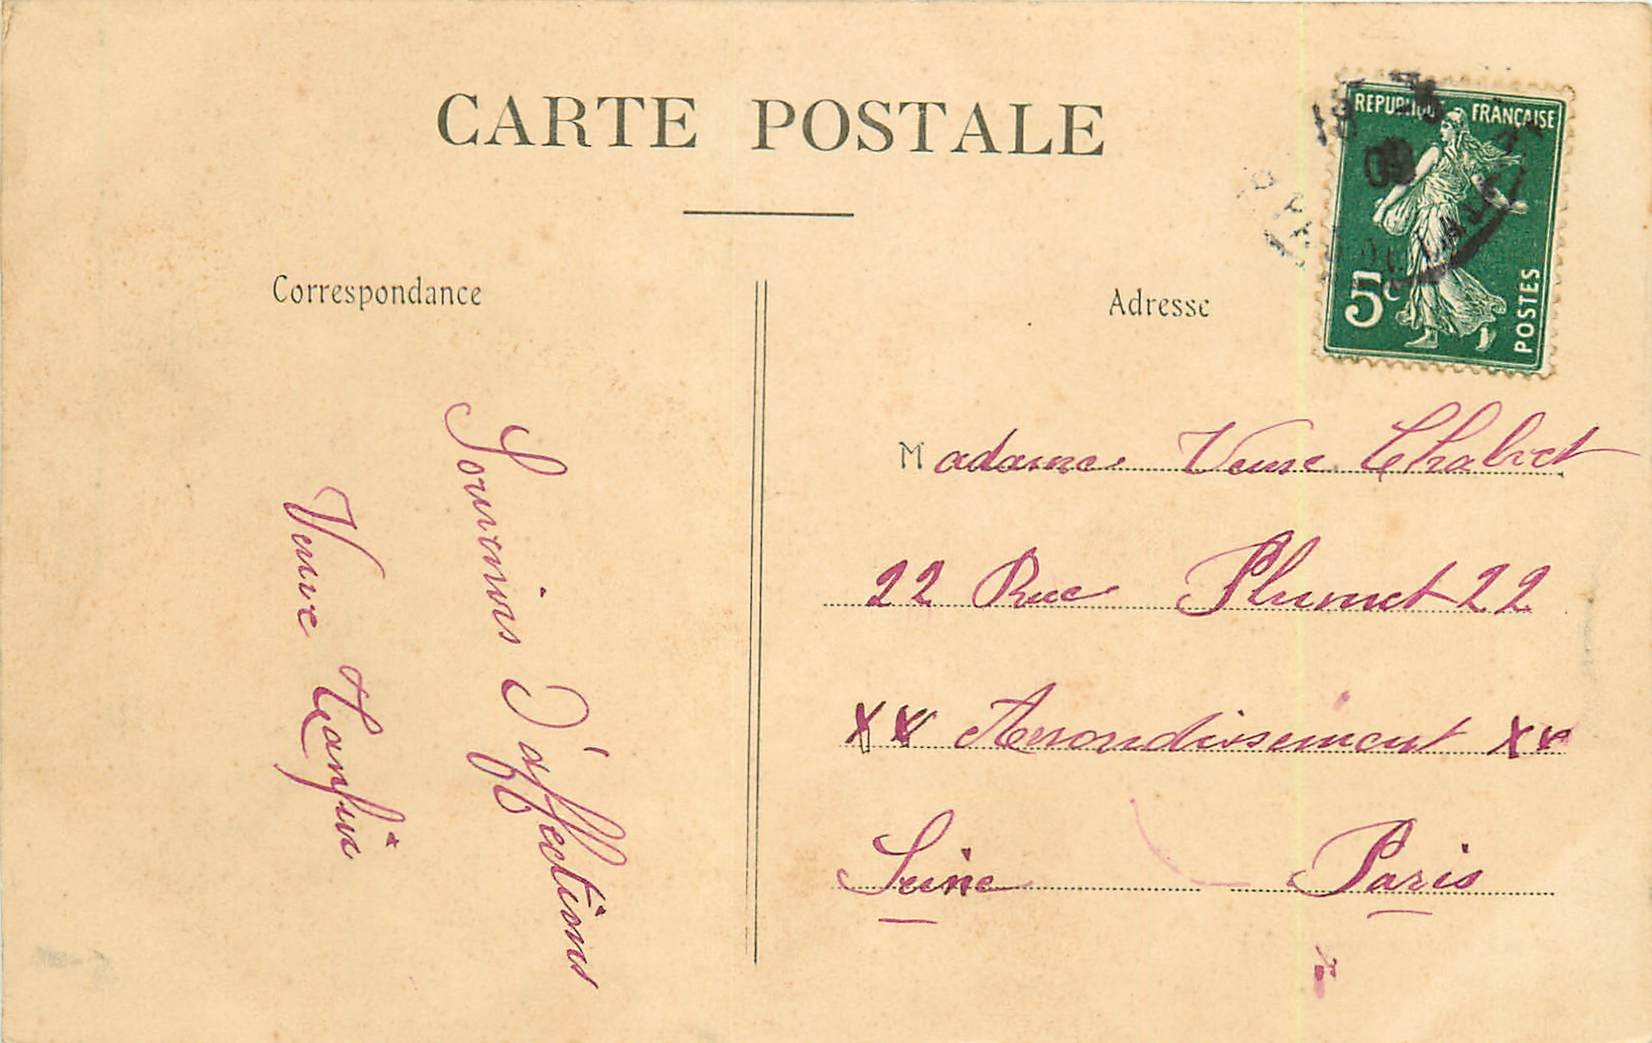 CARTE POSTALE
REPUBLIQUE FRANÇAISE
5c
POSTES
09
Correspondance
Adresse
Souvenirs d'affections
Veuve
Madame Veuve Chabret
22 Rue Plumet 22
XV Arrondissement XV
Seine Paris